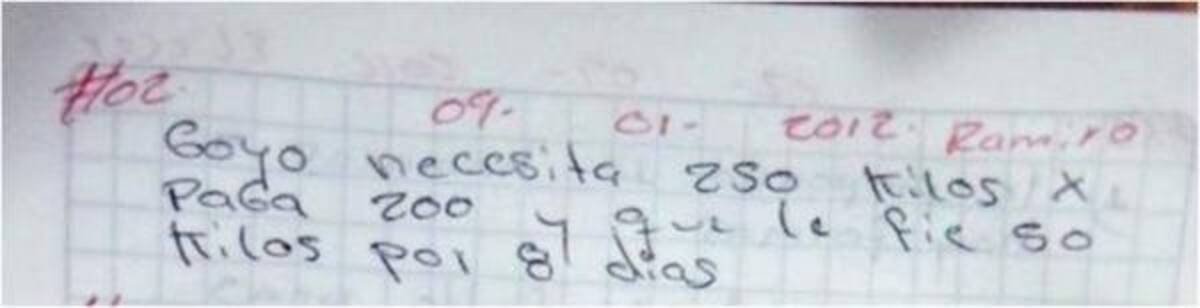 #02. 09. 01. 2012. Ramiro
Goyo necesita 250 Kilos x
PaGa 200 y que le fie 50
Kilos por 8 dias